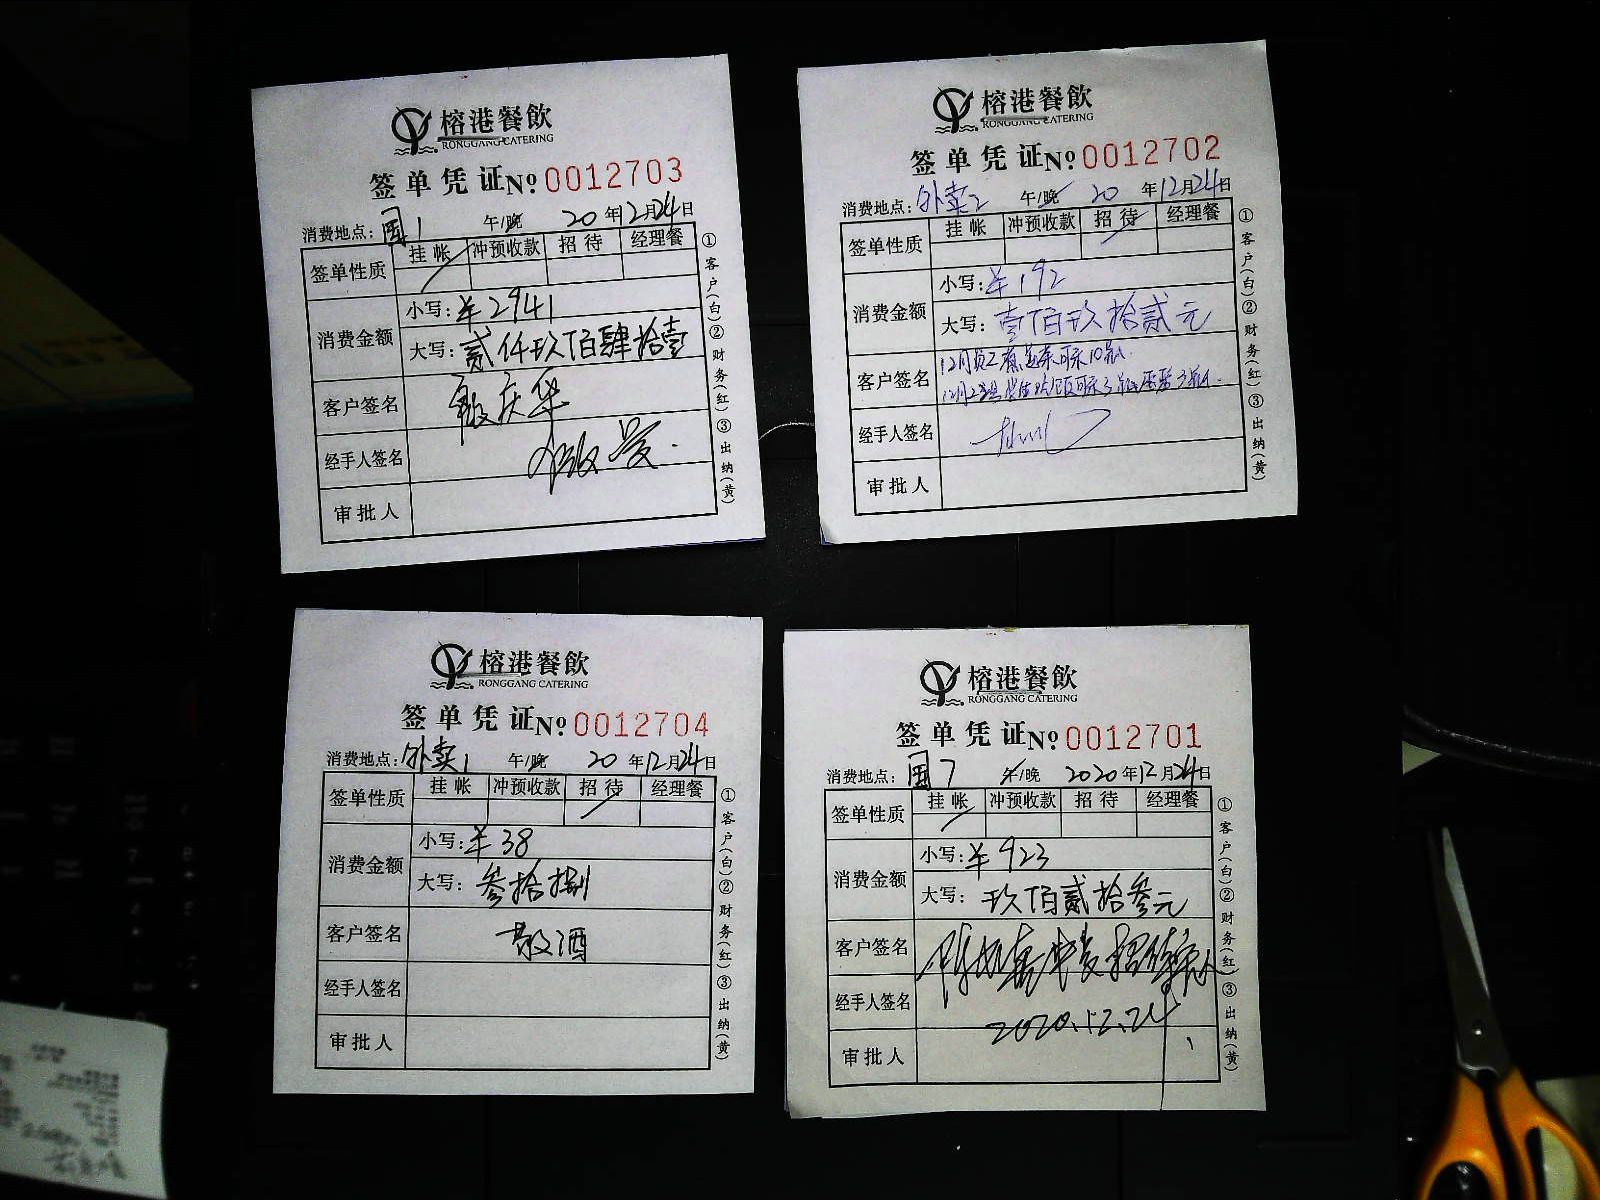 榕港餐飲
RONGGANG CATERING
签单凭证 № 0012703
消费地点: 国1 午/晚 20年12月24日
签单性质 挂帐 冲预收款 招待 经理餐
消费金额 小写: ¥2941
大写: 贰仟玖佰肆拾壹
客户签名
经手人签名
审批人
①客户(白)②财务(红)③出纳(黄)
榕港餐飲
RONGGANG CATERING
签单凭证 № 0012702
消费地点: 外卖2 午/晚 20年12月24日
签单性质 挂帐 冲预收款 招待 经理餐
消费金额 小写: ¥192
大写: 壹佰玖拾贰元
客户签名
经手人签名
审批人
①客户(白)②财务(红)③出纳(黄)
榕港餐飲
RONGGANG CATERING
签单凭证 № 0012704
消费地点: 外卖1 午/晚 20年12月24日
签单性质 挂帐 冲预收款 招待 经理餐
消费金额 小写: ¥38
大写: 叁拾捌
客户签名 散酒
经手人签名
审批人
①客户(白)②财务(红)③出纳(黄)
榕港餐飲
RONGGANG CATERING
签单凭证 № 0012701
消费地点: 国7 午/晚 2020年12月24日
签单性质 挂帐 冲预收款 招待 经理餐
消费金额 小写: ¥923
大写: 玖佰贰拾叁元
客户签名
经手人签名 2020.12.24
审批人
①客户(白)②财务(红)③出纳(黄)